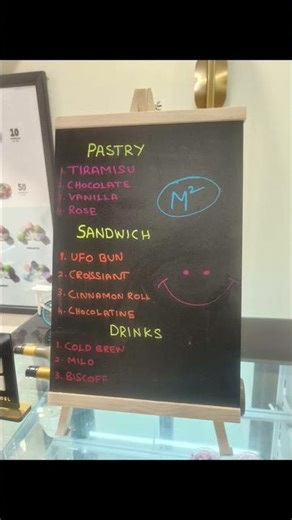 10
50
PASTRY
1. TIRAMISU
2. CHOCOLATE
3. VANILLA
4. ROSE
M²
SANDWICH
1. UFO BUN
2. CROISSIANT
3. CINNAMON ROLL
4. CHOCOLATINE
DRINKS
1. COLD BREW
2. MILO
3. BISCOFF